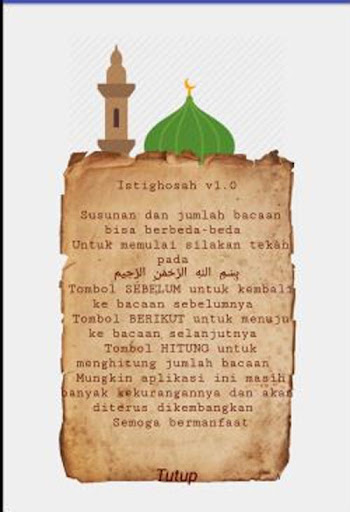 Istighosah v1.0
Susunan dan jumlah bacaan
bisa berbeda-beda
Untuk memulai silakan tekan
pada
بِسْمِ اللهِ الرَّحْمَنِ الرَّحِيْمِ
Tombol SEBELUM untuk kembali
ke bacaan sebelumnya
Tombol BERIKUT untuk menuju
ke bacaan selanjutnya
Tombol HITUNG untuk
menghitung jumlah bacaan
Mungkin aplikasi ini masih
banyak kekurangannya dan akan
diterus dikembangkan
Semoga bermanfaat
Tutup